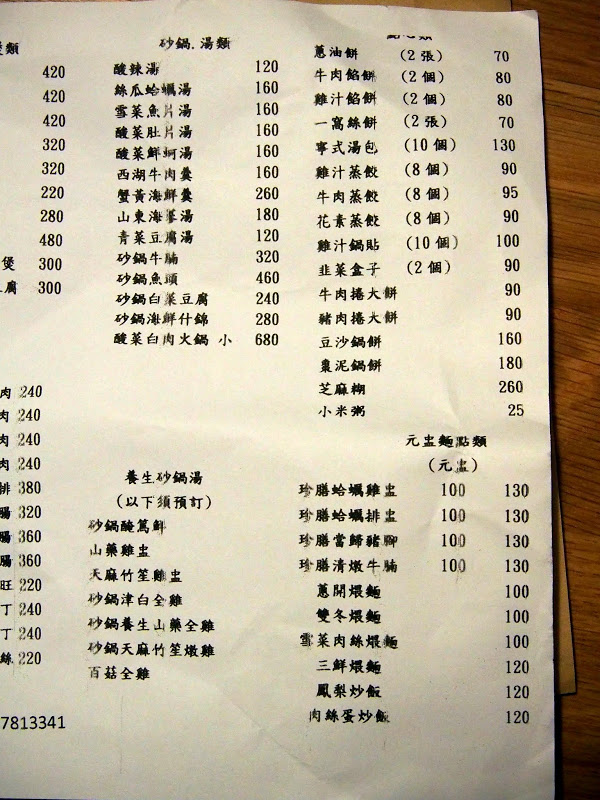 類
420
420
420
320
320
220
280
480
煲 300
腐 300
肉 240
肉 240
肉 240
肉 240
排 380
腸 320
腸 360
腸 360
旺 220
丁 240
丁 240
絲 220
7813341
砂鍋.湯類
酸辣湯 120
絲瓜蛤蠣湯 160
雪菜魚片湯 160
酸菜肚片湯 160
酸菜鮮蚵湯 160
西湖牛肉羹 160
蟹黃海鮮羹 260
山東海蔘湯 180
青菜豆腐湯 120
砂鍋牛腩 320
砂鍋魚頭 460
砂鍋白菜豆腐 240
砂鍋海鮮什錦 280
酸菜白肉火鍋 小 680
養生砂鍋湯
(以下須預訂)
砂鍋醃篤鮮
山藥雞盅
天麻竹笙雞盅
砂鍋津白全雞
砂鍋養生山藥全雞
砂鍋天麻竹笙燉雞
百菇全雞
蔥油餅 (2 張) 70
牛肉餡餅 (2 個) 80
雞汁餡餅 (2 個) 80
一窩絲餅 (2 張) 70
寧式湯包 (10 個) 130
雞汁蒸餃 (8 個) 90
牛肉蒸餃 (8 個) 95
花素蒸餃 (8 個) 90
雞汁鍋貼 (10 個) 100
韭菜盒子 (2 個) 90
牛肉捲大餅 90
豬肉捲大餅 90
豆沙鍋餅 160
棗泥鍋餅 180
芝麻糊 260
小米粥 25
元盅麵點類
(元盅)
珍膳蛤蠣雞盅 100 130
珍膳蛤蠣排盅 100 130
珍膳當歸豬腳 100 130
珍膳清燉牛腩 100 130
蔥開煨麵 100
雙冬煨麵 100
雪菜肉絲煨麵 100
三鮮煨麵 120
鳳梨炒飯 120
肉絲蛋炒飯 120